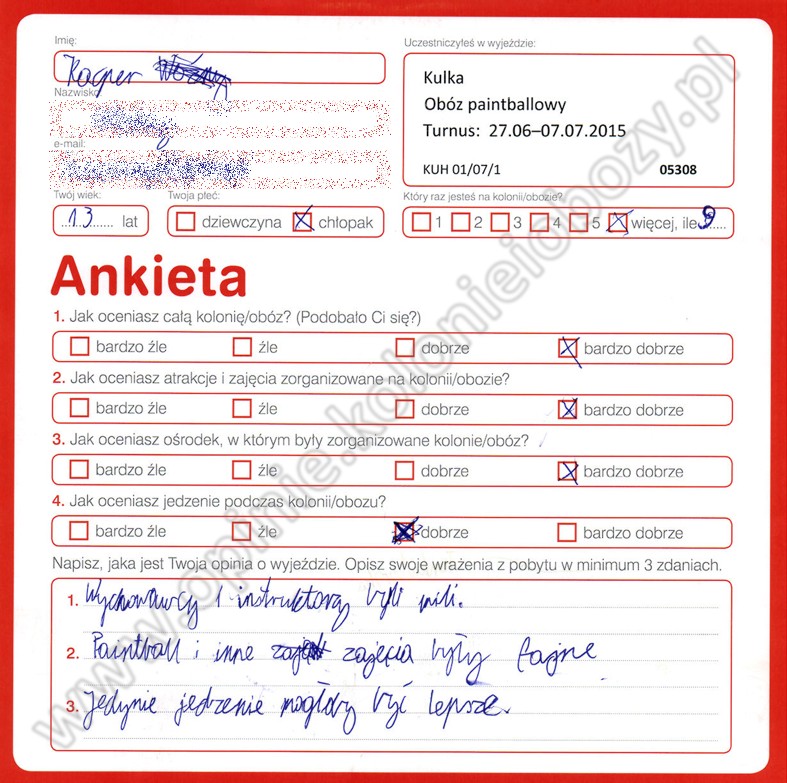 Imię:
Kacper
Nazwisko
e-mail:
Twój wiek:
13 lat
Twoja płeć:
dziewczyna chłopak
Uczestniczyłeś w wyjeździe:
Kulka
Obóz paintballowy
Turnus: 27.06–07.07.2015
KUH 01/07/1 05308
Który raz jesteś na kolonii/obozie?
1 2 3 4 5 więcej, ile 9
Ankieta
1. Jak oceniasz całą kolonię/obóz? (Podobało Ci się?)
bardzo źle źle dobrze bardzo dobrze
2. Jak oceniasz atrakcje i zajęcia zorganizowane na kolonii/obozie?
bardzo źle źle dobrze bardzo dobrze
3. Jak oceniasz ośrodek, w którym były zorganizowane kolonie/obóz?
bardzo źle źle dobrze bardzo dobrze
4. Jak oceniasz jedzenie podczas kolonii/obozu?
bardzo źle źle dobrze bardzo dobrze
Napisz, jaka jest Twoja opinia o wyjeździe. Opisz swoje wrażenia z pobytu w minimum 3 zdaniach.
1. Wychowawcy i instruktorzy byli mili.
2. Paintball i inne zajęcia były fajne
3. Jedynie jedzenie mogłoby być lepsze.
www.opinie.kolonieiobozy.pl